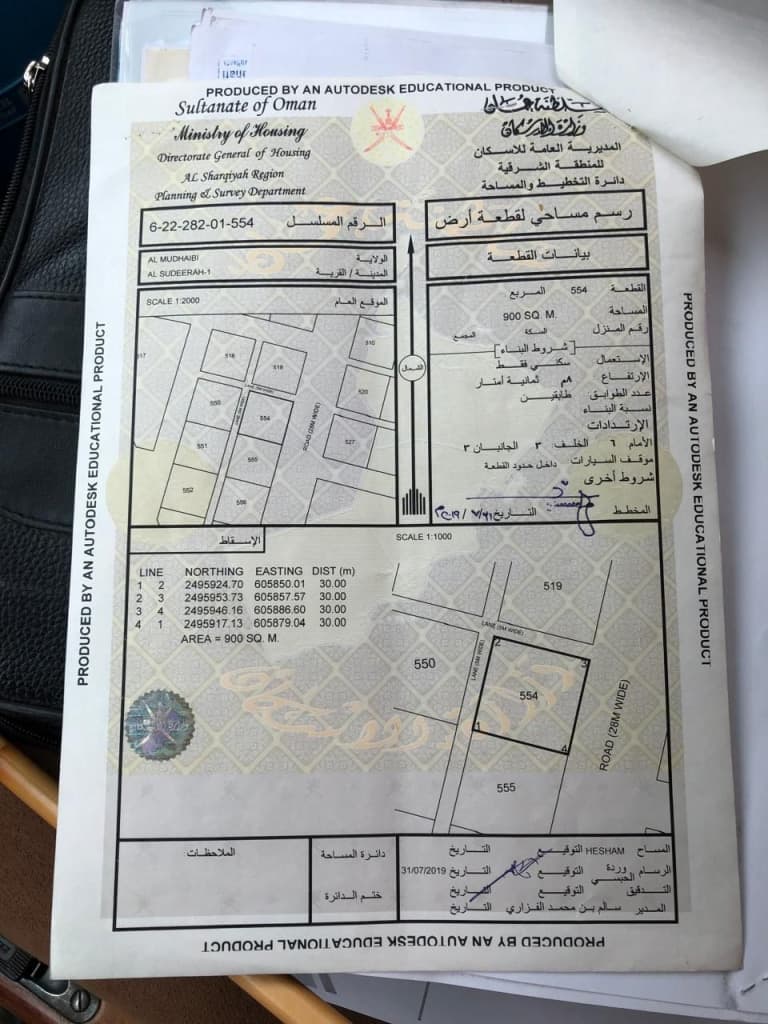 PRODUCED BY AN AUTODESK EDUCATIONAL PRODUCT
Sultanate of Oman
Ministry of Housing
Directorate General of Housing
AL Sharqiyah Region
Planning & Survey Department
سلطنة عمان
وزارة الإسكان
المديرية العامة للاسكان
للمنطقة الشرقية
دائرة التخطيط والمساحة
6-22-282-01-554 الـرقم المسلسـل
رسـم مساحي لقطعـة أرض
AL MUDHAIBI الولاية
AL SUDEERAH-1 المدينة / القرية
بيانات القطعـة
SCALE 1:2000 الموقع العام
517
516
518
510
LANE (5M WIDE)
550
554
520
LANE (5M WIDE)
551
555
ROAD (28M WIDE)
527
552
556
الشمال
القطعـة 554 المـربع
المساحة 900 SQ. M.
رقم المنزل السكة المجمع
شروط البناء
الإستعمال سكني فقـط
الإرتفاع ٨م ثمانية أمتار
عدد الطوابق طابقين
نسبة البناء
الإرتدادات
الأمام ٦ الخلف ٣ الجانبان ٣
موقف السيارات داخل حدود القطعة
شروط أخرى
المخطط التاريخ
الإسقاط
SCALE 1:1000
LINE NORTHING EASTING DIST (m)
1 2 2495924.70 605850.01 30.00
2 3 2495953.73 605857.57 30.00
3 4 2495946.16 605886.60 30.00
4 1 2495917.13 605879.04 30.00
AREA = 900 SQ. M.
519
LANE (5M WIDE)
LANE (5M WIDE)
550
2
3
554
1
4
ROAD (28M WIDE)
555
الملاحظات
دائرة المساحة
ختم الدائرة
المساح HESHAM التوقيع التاريخ
الرسام وردة الحبسي التوقيع التاريخ 31/07/2019
التدقيق التوقيع التاريخ
المدير سالم بن محمد الفزاري التاريخ
PRODUCED BY AN AUTODESK EDUCATIONAL PRODUCT
PRODUCED BY AN AUTODESK EDUCATIONAL PRODUCT
PRODUCED BY AN AUTODESK EDUCATIONAL PRODUCT